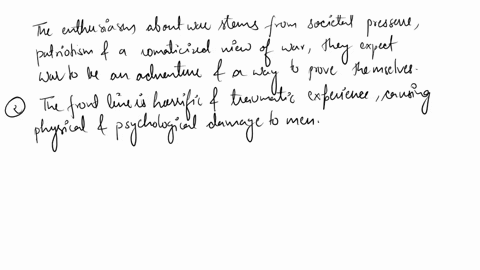 The enthusiasm about war stems from societal pressure,
patriotism & a romaticized view of war, they expect
war to be an adventure & a way to prove themselves.
② The front line is horrific & traumatic experience, causing
physical & psychological damage to men.